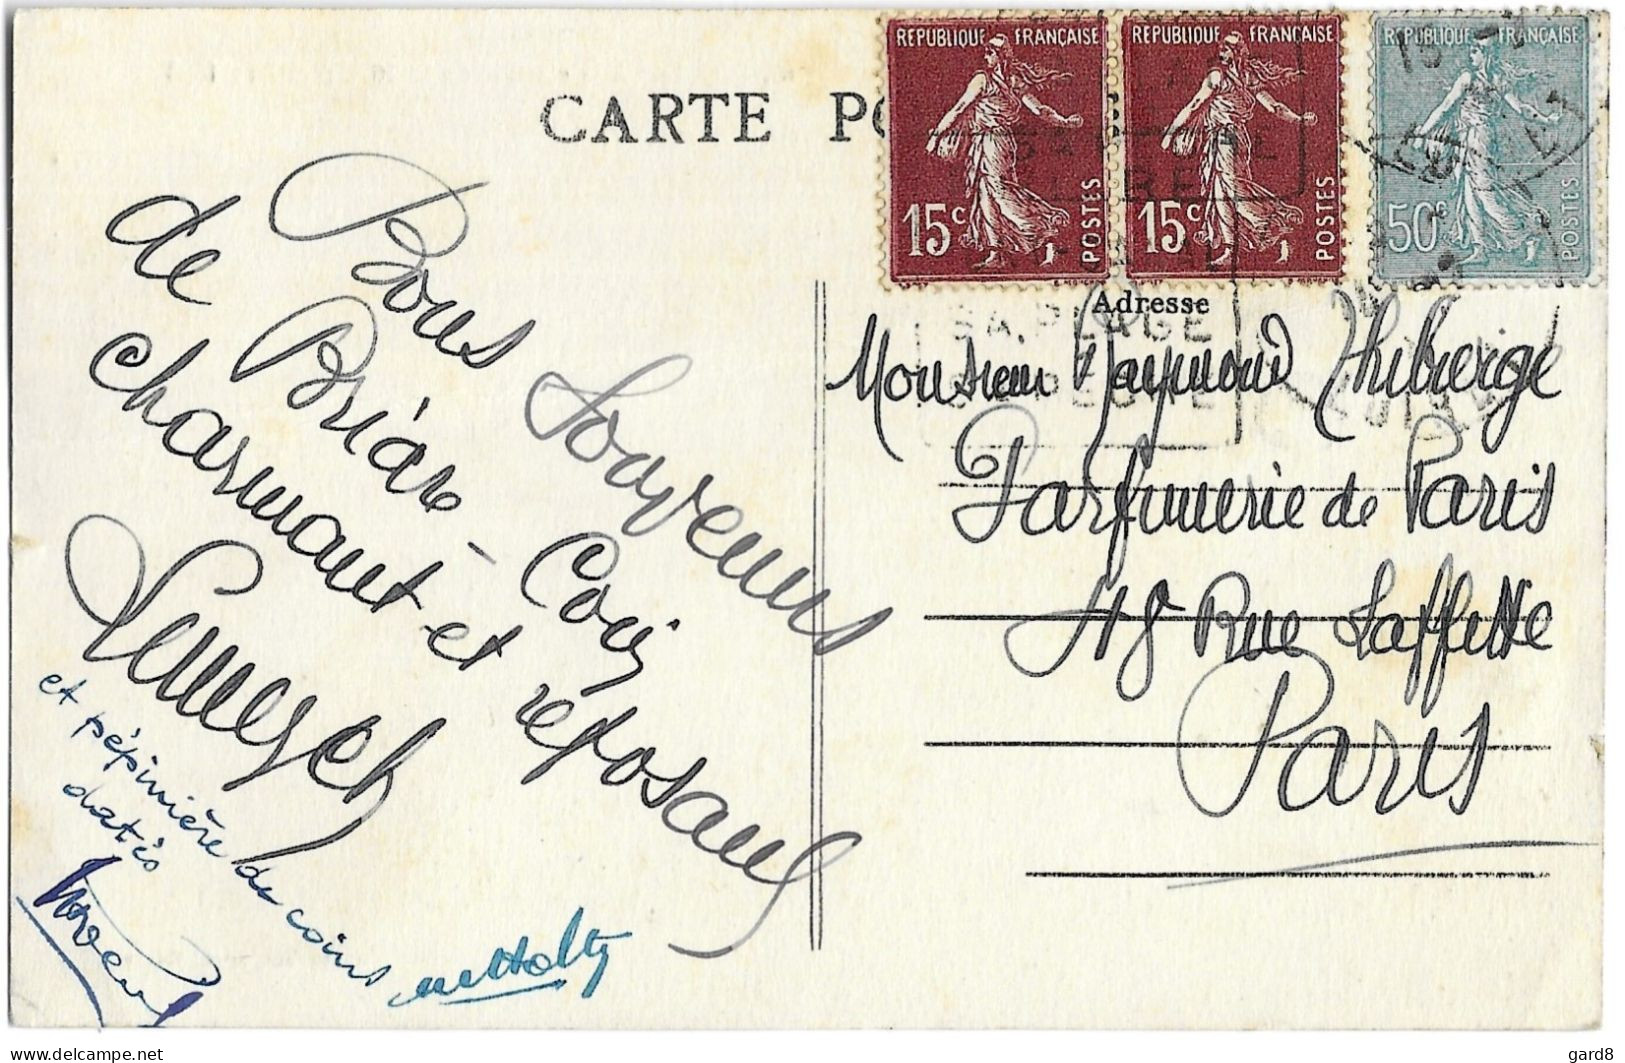 CARTE PO
REPUBLIQUE FRANÇAISE
15c
POSTES
REPUBLIQUE FRANÇAISE
15c
POSTES
REPUBLIQUE FRANÇAISE
50c
POSTES
Adresse
SA PLAGE
Bons Souvenirs
de Briare Coin
charmant et reposant
et pépinière de coins
datés
Monsieur Raymond Thiberge
Parfumerie de Paris
48 Rue Laffitte
Paris
www.delcampe.net
gard8